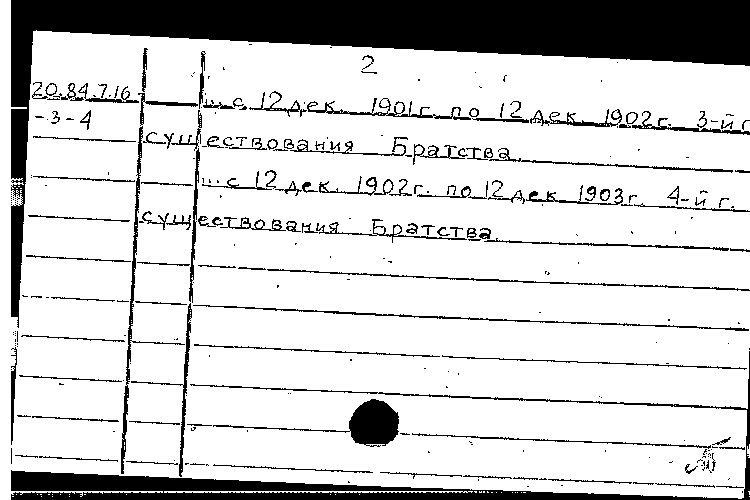 2
20.84.7.16 ... с 12 дек. 1901г. по 12 дек. 1902г. 3-й г.
-3-4 существования Братства.
... с 12 дек. 1902г. по 12 дек 1903г. 4-й г.
существования Братства.